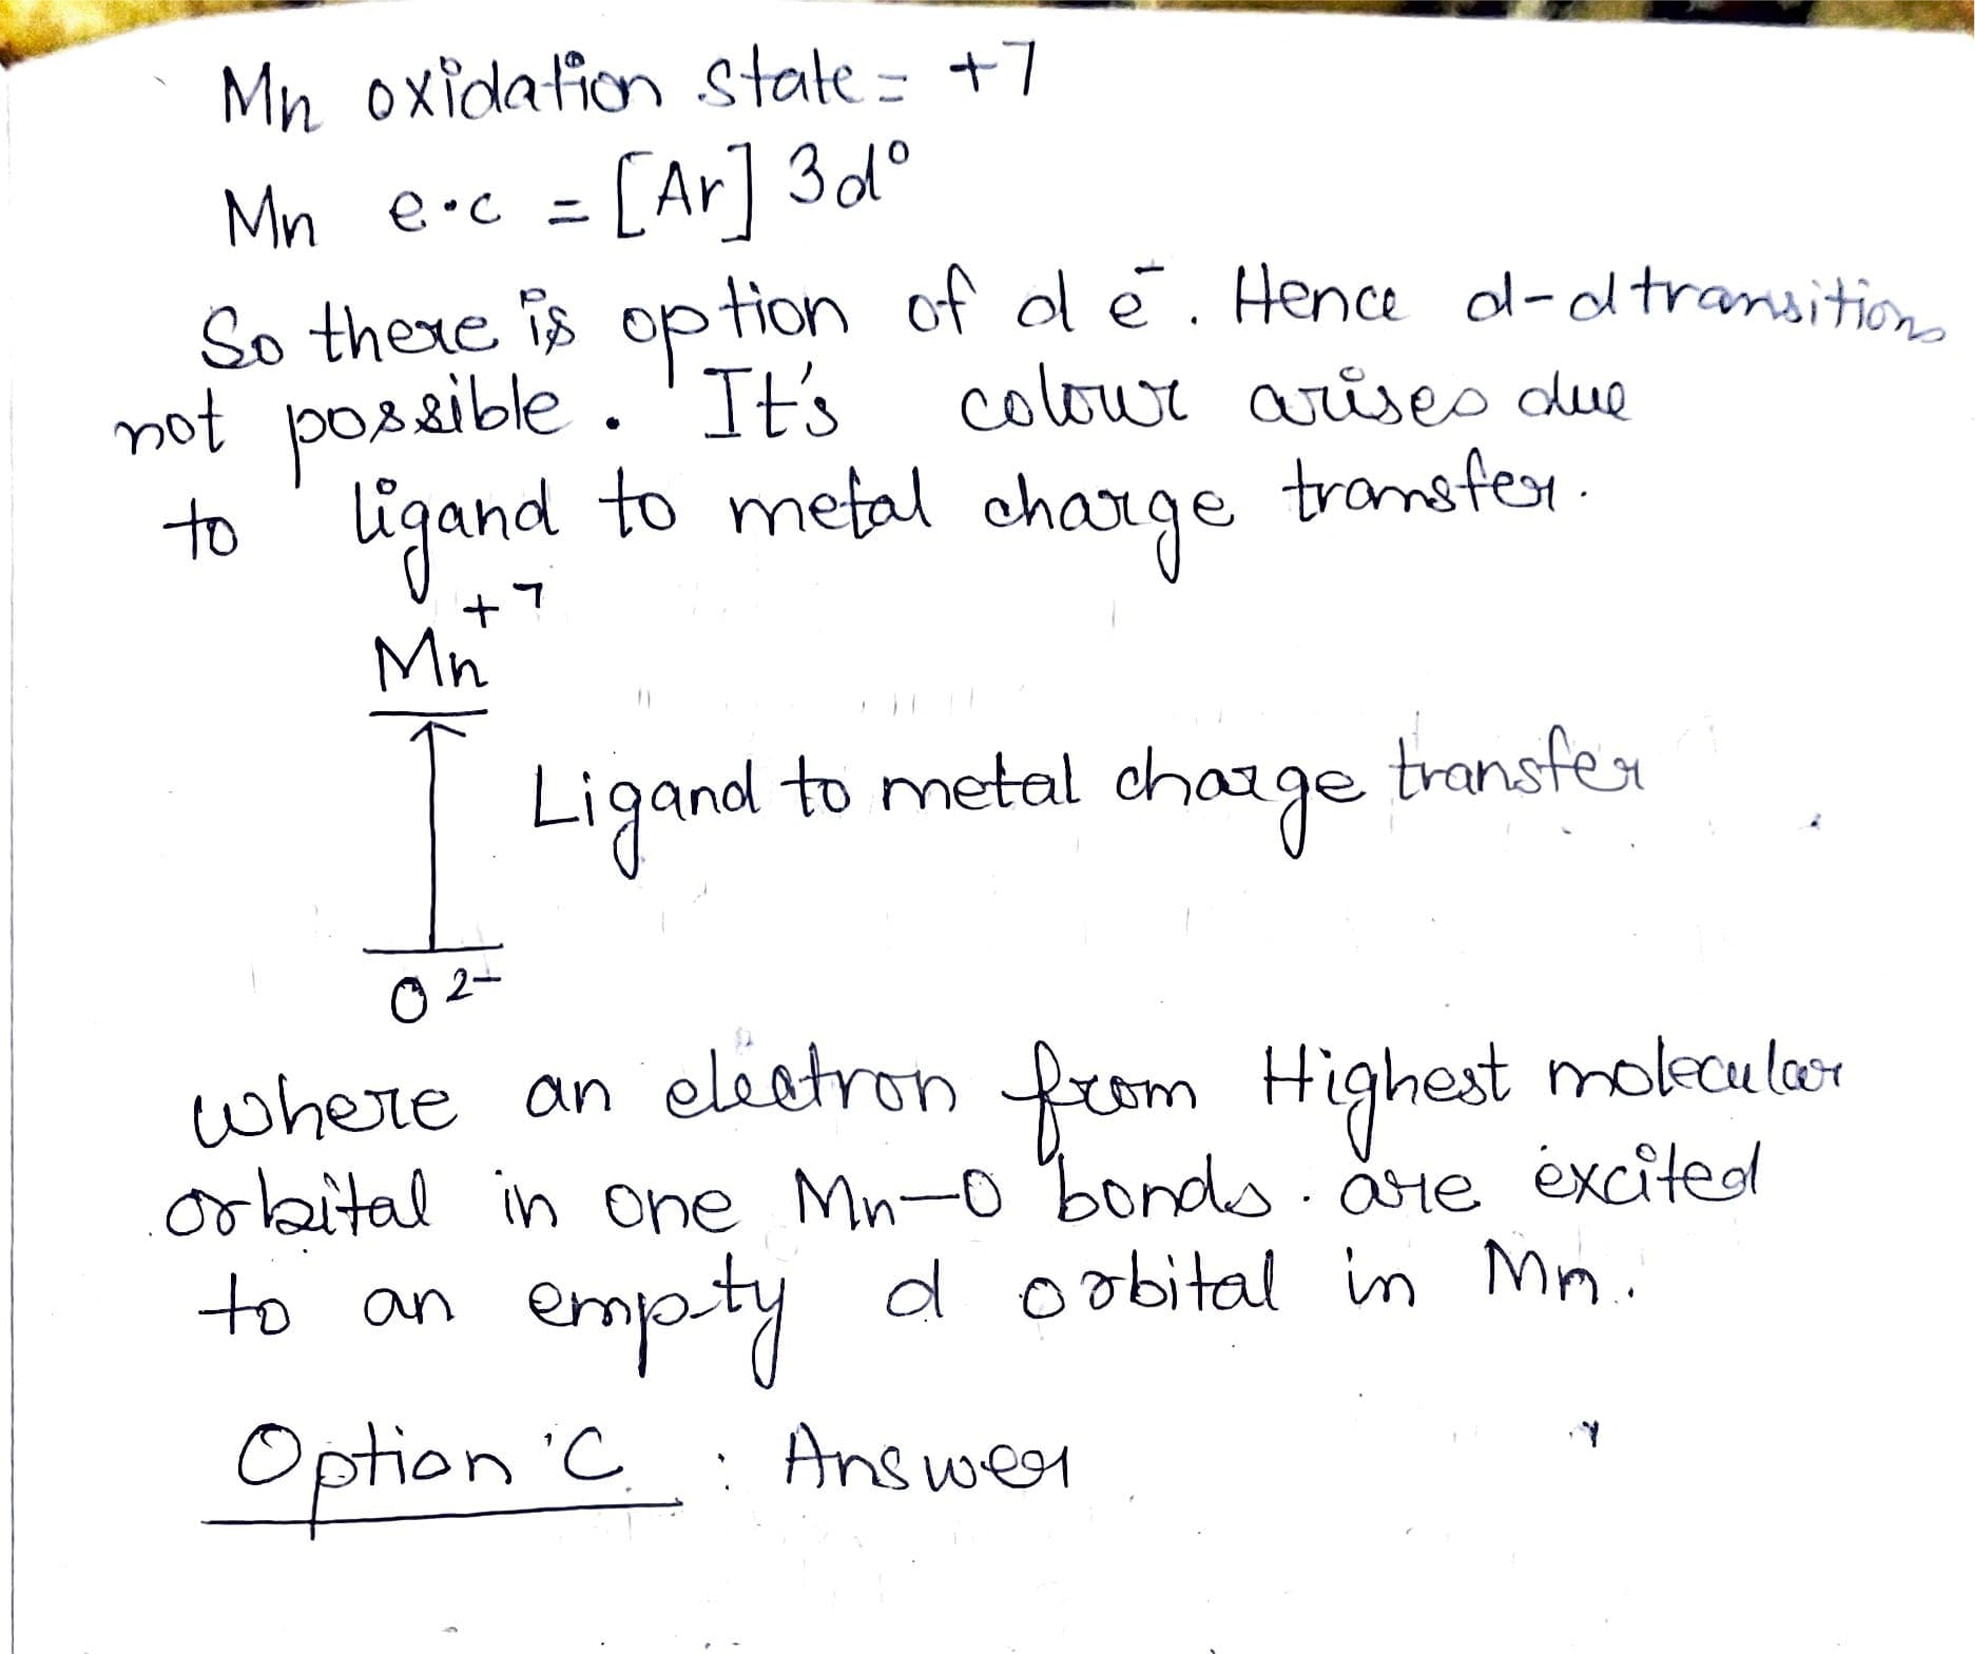 Mn oxidation state = +7
Mn e.c = [Ar] 3d⁰
So there is option of d e⁻. Hence d-d transitions
not possible. It's colour arises due
to ligand to metal charge transfer.
Mn⁺⁷
Ligand to metal charge transfer
O²⁻
where an electron from Highest molecular
orbital in one Mn-O bonds. are excited
to an empty d orbital in Mn.
Option 'C. : Answer